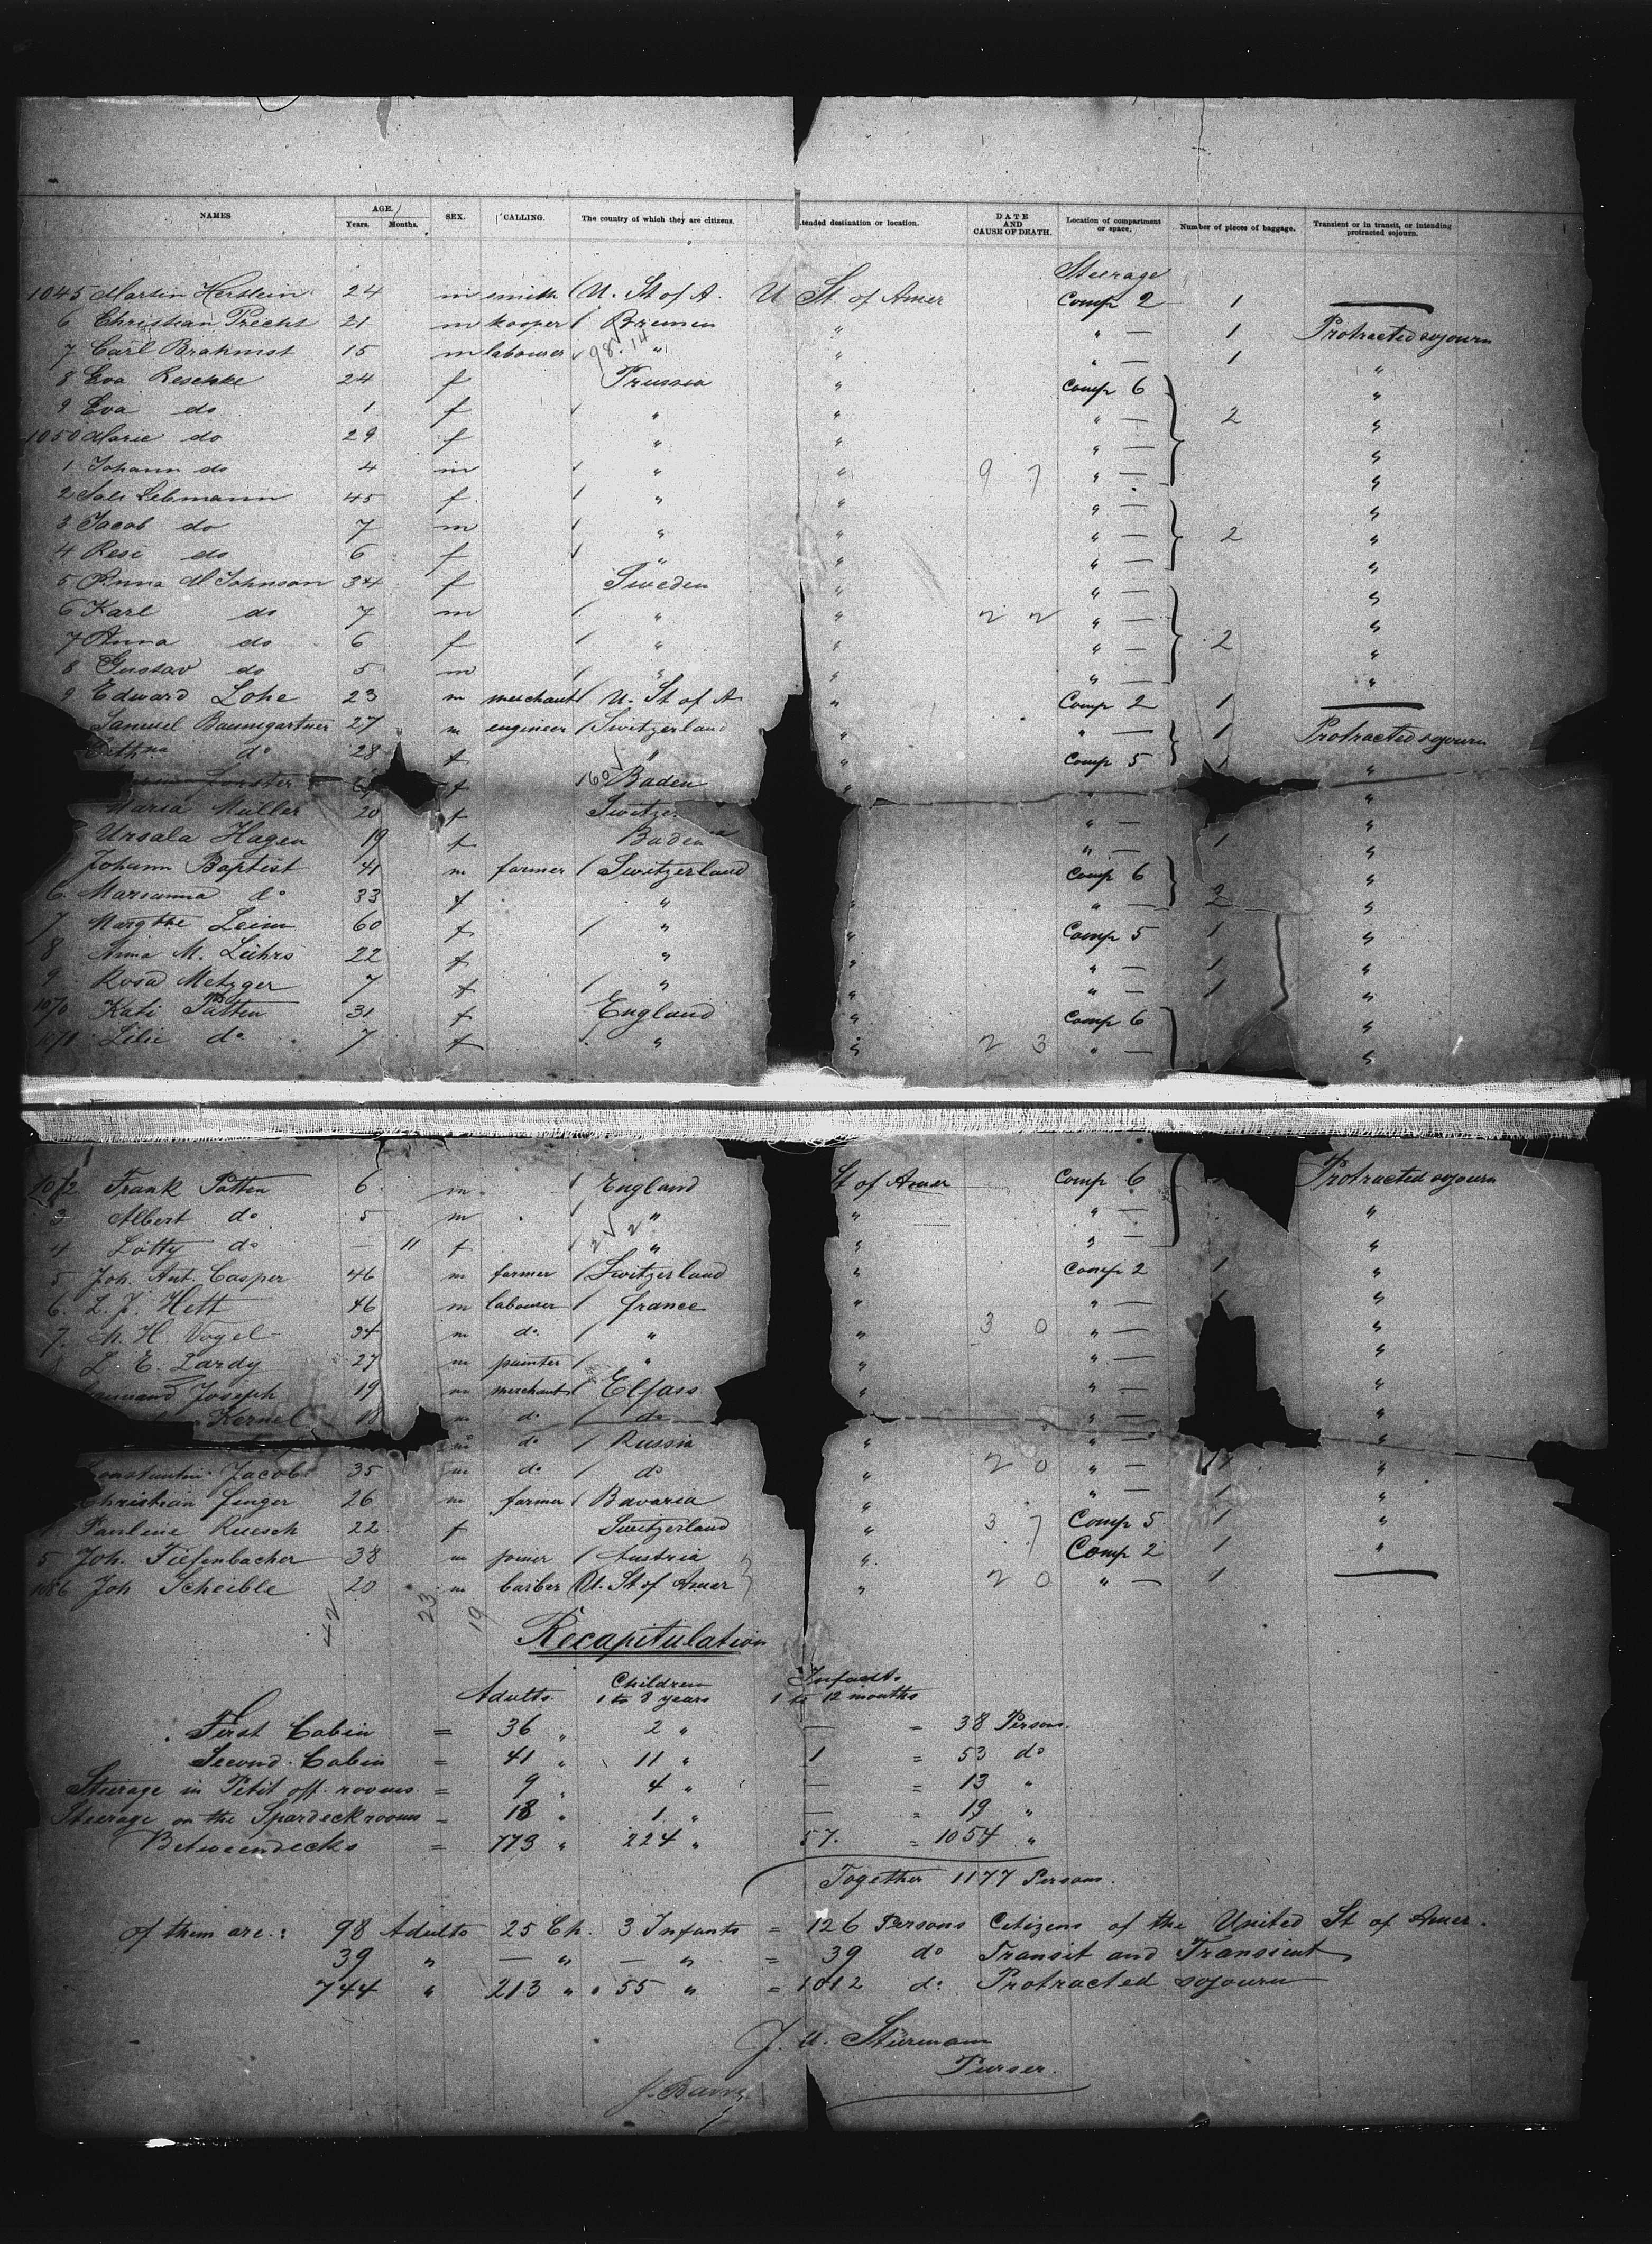 NAMES AGE. Years. Months. SEX. CALLING. The country of which they are citizens. tended destination or location. DATE AND CAUSE OF DEATH. Location of compartment or space. Number of pieces of baggage. Transient or in transit, or intending protracted sojourn.
Steerage
1045 Martin Herdlein 24 m smith U. St of A. U St. of Amer Comp 2 1 —
6 Christian Precht 21 m kooper Bremen " " — 1 Protracted sojourn
7 Carl Brahmst 15 m labourer " " " — 1 "
8 Eva Reschke 24 f Prussia " Comp 6 "
9 Eva do 1 f " " " — 2 "
1050 Marie do 29 f " " " — "
1 Johann do 4 m " " 9 7 " — "
2 Sali Lebmann 45 f " " " — "
3 Jacob do 7 m " " " — 2 "
4 Resi do 6 f " " " — "
5 Anna M Johnson 34 f Sweden " " — "
6 Karl do 7 m " " 2 2 " — "
7 Anna do 6 f " " " — 2 "
8 Gustav do 5 m " " " — "
9 Edward Lohe 23 m merchant U. St of A " Comp 2 1 —
Samuel Baumgartner 27 m engineer Switzerland " " — 1 Protracted sojourn
Cathna do 28 f " " Comp 5 1 "
Forster f 160 Baden " " "
Maria Müller 20 f Switze " — "
Ursala Hagen 19 f Baden " — 1 "
Johann Baptist 41 m farmer Switzerland Comp 6 "
6 Marianna do 33 f " " " — 2 "
7 Margthe Leim 60 f " " Comp 5 1 "
8 Anna M. Lührs 22 f " " " — 1 "
9 Rosa Metzger 7 f " " " — 1 "
1070 Kati Patten 31 f England " Comp 6 "
1071 Lilie do 7 f " " 2 3 " — "
1072 Frank Patten 6 m England St of Amer Comp 6 Protracted sojourn
3 Albert do 5 m " " " — "
4 Lotty do — 11 f " " " — "
5 Joh. Ant. Casper 46 m farmer Switzerland " Comp 2 1 "
6. L. J. Hett 46 m labourer france " " — "
7. M. H. Vogel 34 m do " " 3 0 " — "
L. E. Lardy 27 m painter " " " — "
Joseph 19 m merchant Elsass " " — "
Kernel 18 m do do " — "
m do Russia " " — "
Constantin Jacob 35 m do do " 2 0 " — "
Christian Jenger 26 m farmer Bavaria " " — 1 "
Pauline Ruesch 22 f Switzerland " 3 7 Comp 5 1 "
5 Joh. Tiefenbacher 38 m joiner Austria " Comp 2 1 "
1086 Joh Scheible 20 m barber U. St of Amer " 2 0 " — 1 —
42 23 19
Recapitulation
Adults Children 1 to 8 years Infants 1 to 12 months
First Cabin = 36 " 2 " — = 38 Persons.
Second Cabin = 41 " 11 " 1 = 53 do
Steerage in Petit off. rooms = 9 " 4 " — = 13 "
Steerage on the Spardeck rooms = 18 " 1 " — = 19 "
Betweendecks = 773 " 224 " 57. = 1054 "
Together 1177 Persons.
Of them are: 98 Adults 25 Ch. 3 Infants = 126 Persons Citizens of the United St of Amer.
39 " — " — " = 39 do Transit and Transient
744 " 213 " 55 " = 1012 do Protracted sojourn
Purser.